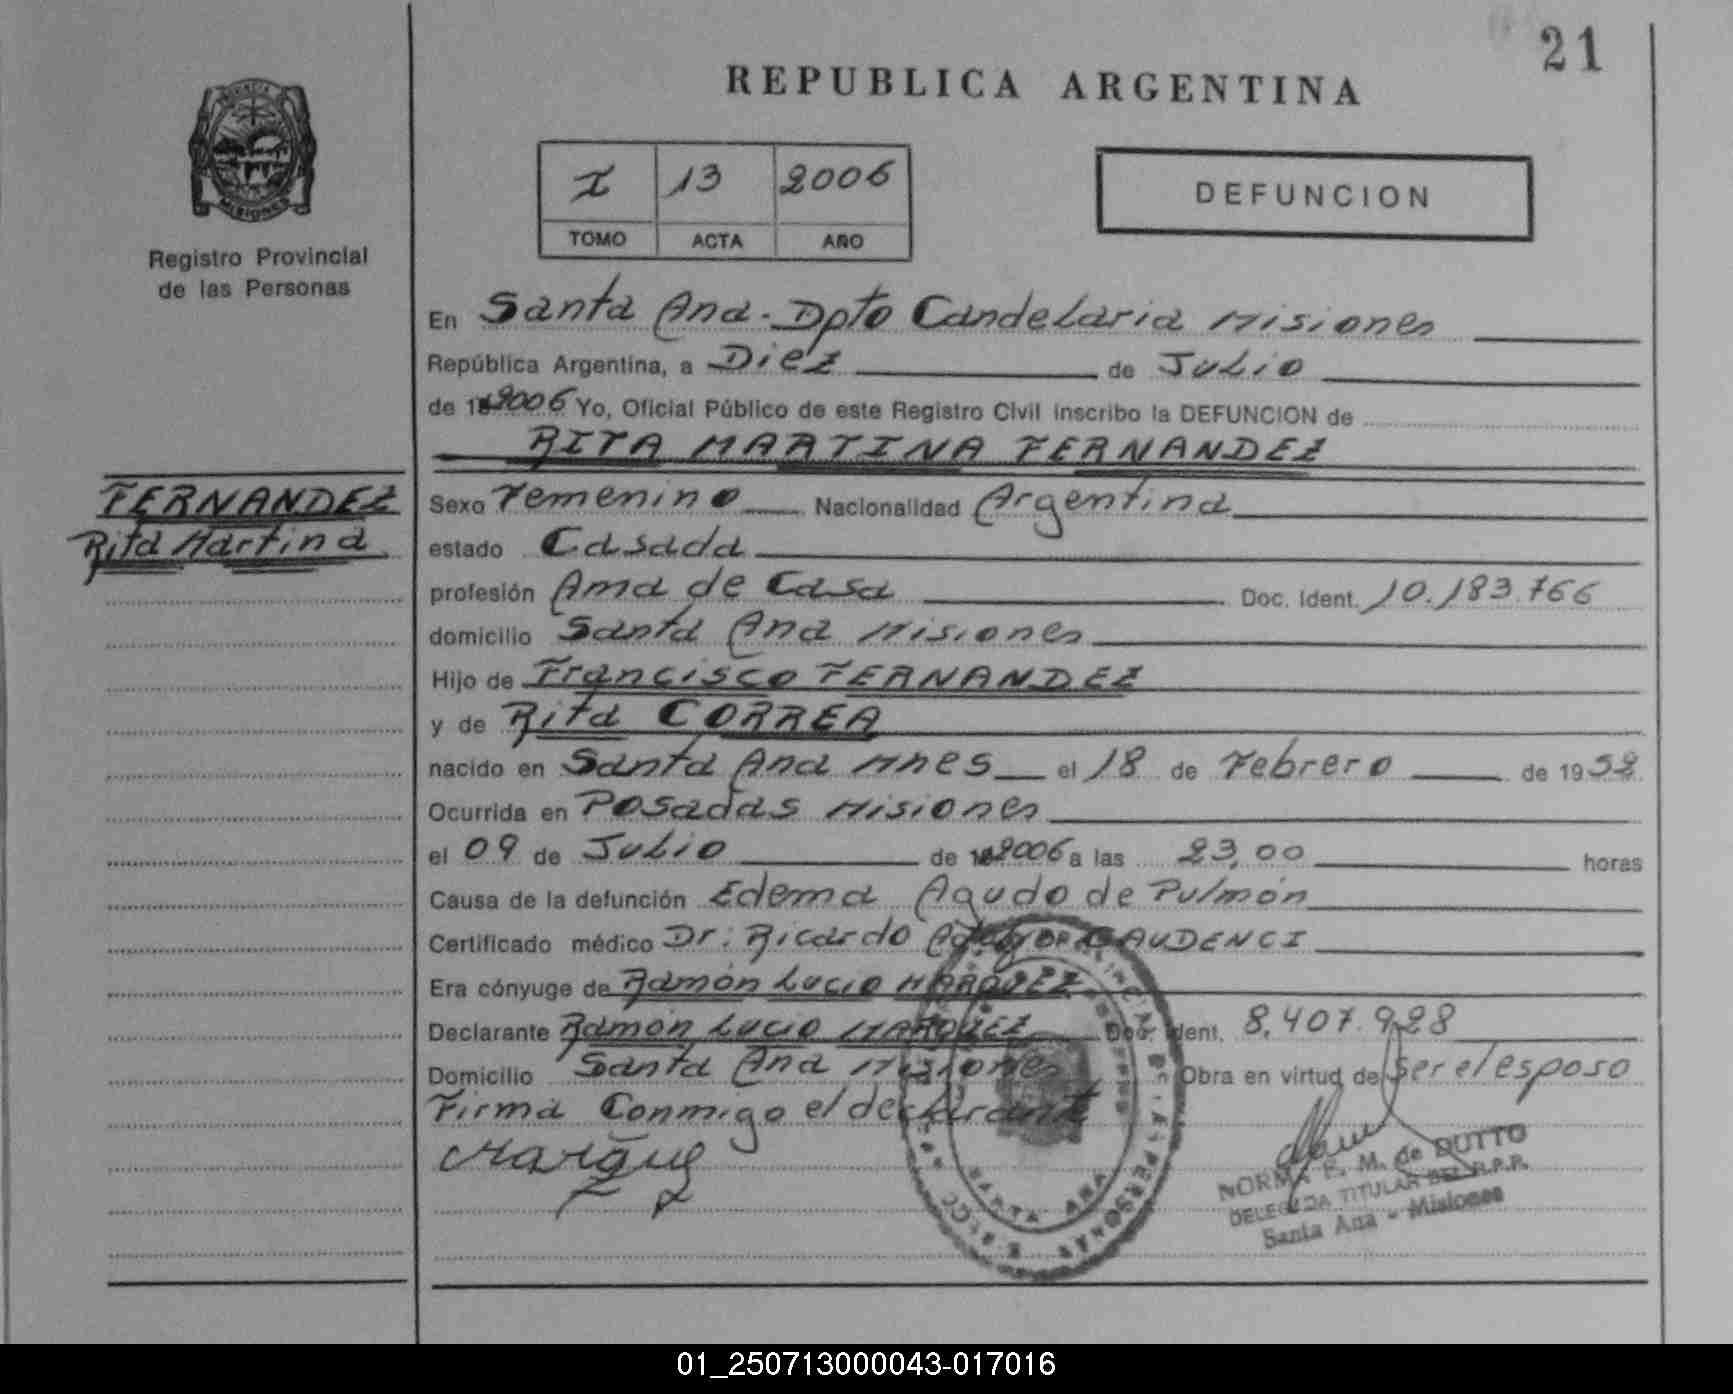 21
REPUBLICA ARGENTINA
PROVINCIA
MISIONES
Registro Provincial
de las Personas
I 13 2006
TOMO ACTA AÑO
DEFUNCION
En Santa Ana - Dpto Candelaria Misiones
República Argentina, a Diez de Julio
de 2006 Yo, Oficial Público de este Registro Civil inscribo la DEFUNCION de
RITA MARTINA FERNANDEZ
FERNANDEZ
Rita Martina
Sexo Femenino Nacionalidad Argentina
estado Casada
profesión Ama de Casa Doc. Ident. 10.183.766
domicilio Santa Ana Misiones
Hijo de Francisco FERNANDEZ
y de Rita CORREA
nacido en Santa Ana Mnes el 18 de Febrero de 1952
Ocurrida en Posadas Misiones
el 09 de Julio de 2006 a las 23,00 horas
Causa de la defunción Edema Agudo de Pulmón
Certificado médico Dr: Ricardo GAUDENCI
Era cónyuge de Ramón Lucio MARQUEZ
Declarante Ramón Lucio MARQUEZ Doc. Ident. 8.407.928
Domicilio Santa Ana Misiones Obra en virtud de Ser el esposo
Firma Conmigo el declarante
Marquez
R L
SANTA ANA
NORMA E. M. de DUTTO
DELEGADA TITULAR DEL R.P.P.
Santa Ana - Misiones
01_250713000043-017016